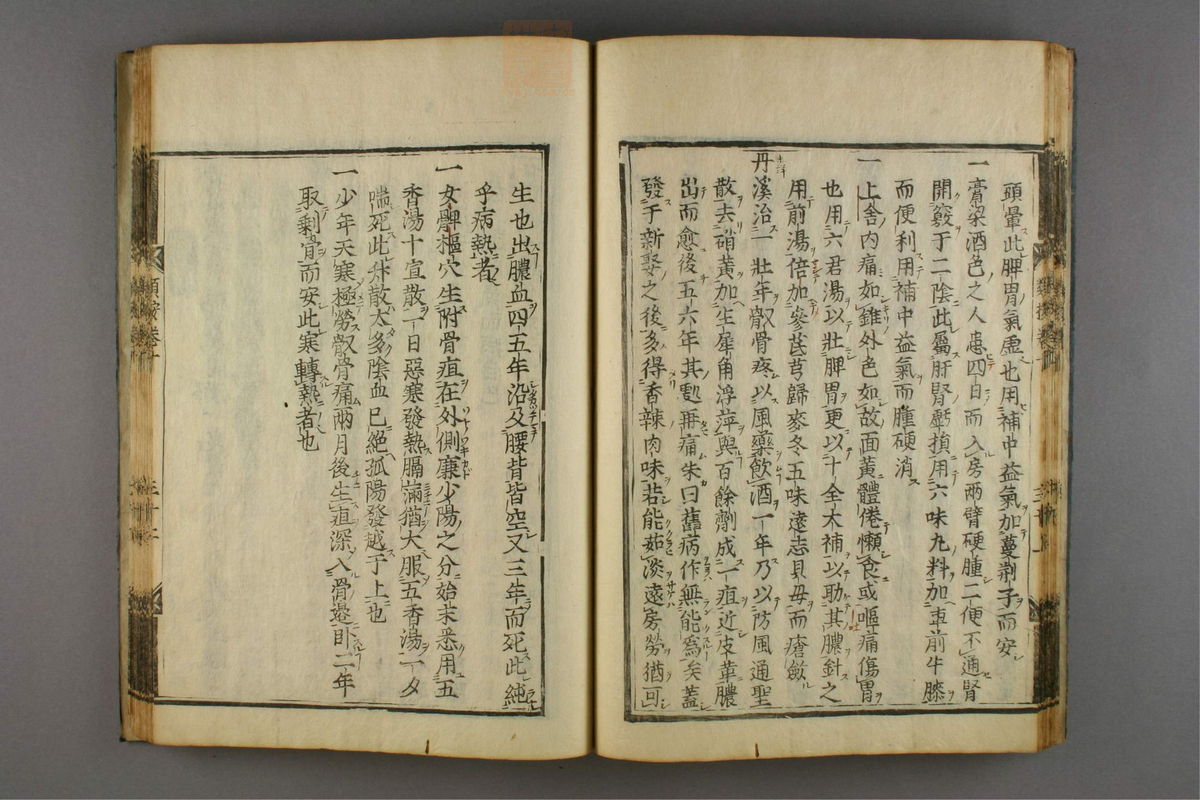 頭暈此脾胃氣虛也用補中益氣加蔓荆子而安
一膏粱酒色之人患四日而入房兩臂硬腫二便不通腎
開竅于二陰此屬肝腎虧損用六味丸料加車前牛膝
而便利用補中益氣而腫硬消
一上舍内痛如錐外色如故面黃體倦懶食或嘔痛傷胃
也用六君湯以壯脾胃更以十全大補以助其膿針之
用前湯倍加參芪芎歸麥冬五味遠志貝毋而瘡歛
丹溪治一壯年骰骨疼以風藥飲酒一年乃以防風通聖
散去硝黃加生犀角浮萍與百餘劑成一疽近皮革膿
出而愈後五六年其處再痛朱曰舊病作無能爲矣蓋
發于新娶之後多得香辣肉味若能茹淡遠房勞猶可
生也出膿血四五年沿及腰背皆空又三年而死此純
乎病熱者
一女髀樞穴生附骨疽在外側廉少陽之分始末悉用五
香湯十宣散一日惡寒發熱膈滿猶大服五香湯一夕
喘死此升散太多陰血已絕孤陽發越于上也
一少年天寒極勞骰骨痛兩月後生疽深入骨邊卧二年
取剩骨而安此寒轉熱者也